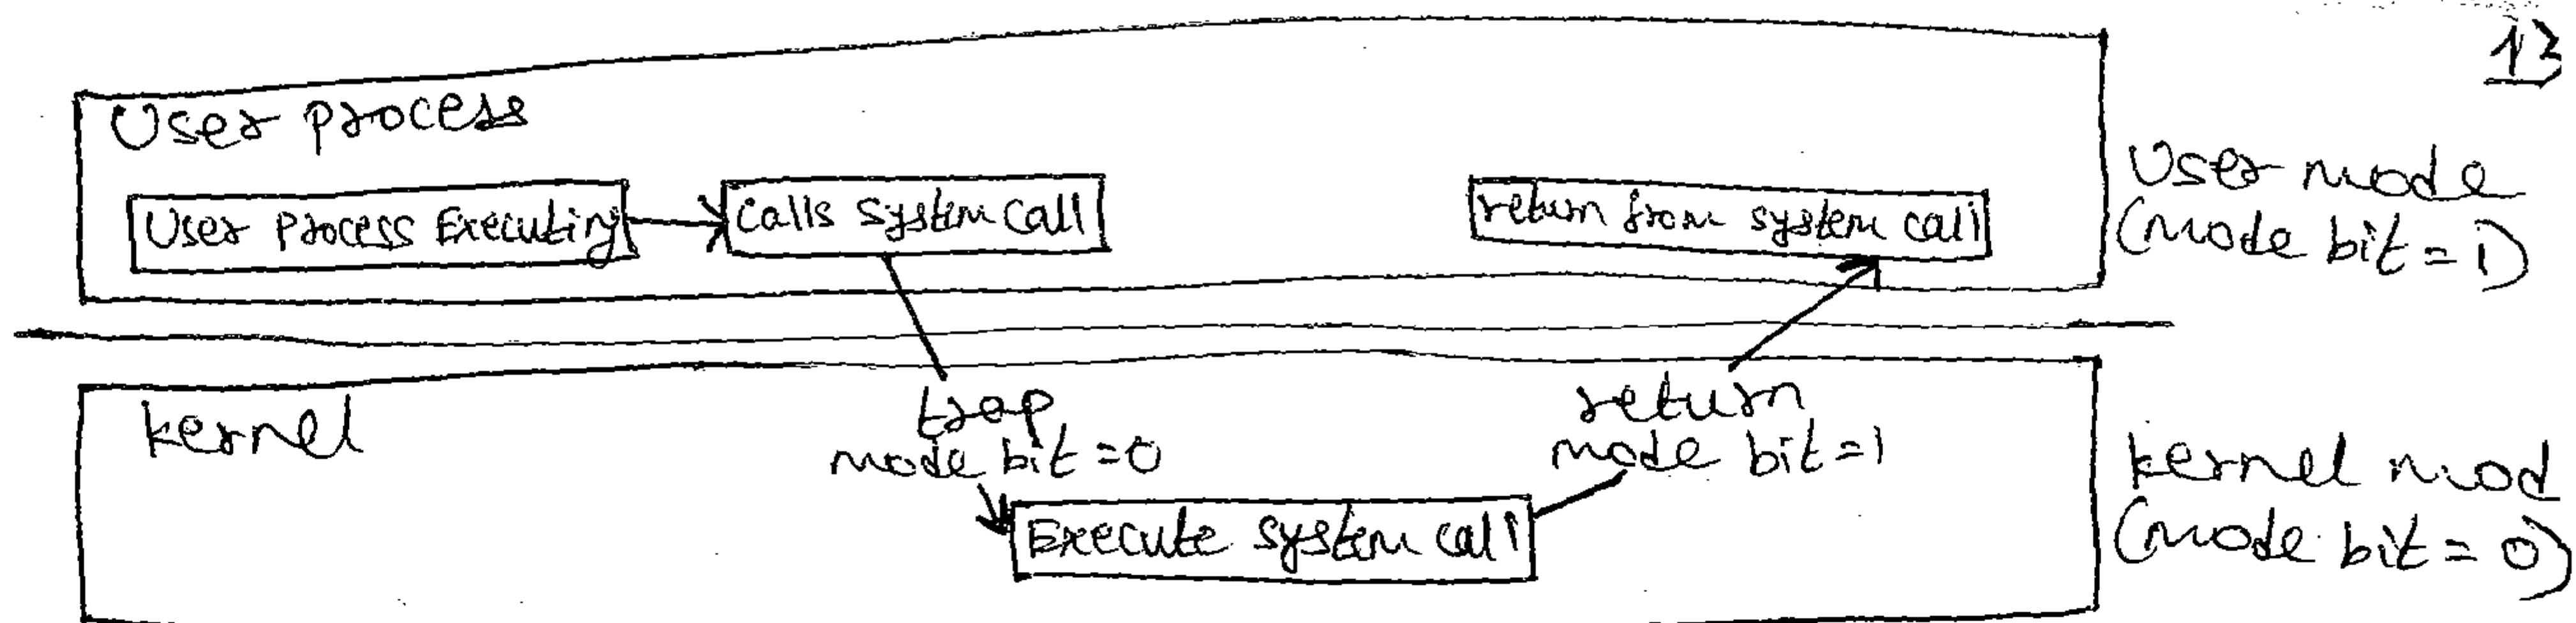 13
User process
User Process Executing
calls system call
return from system call
User mode
(mode bit = 1)
kernel
trap
mode bit = 0
return
mode bit = 1
Execute system call
kernel mod
(mode bit = 0)